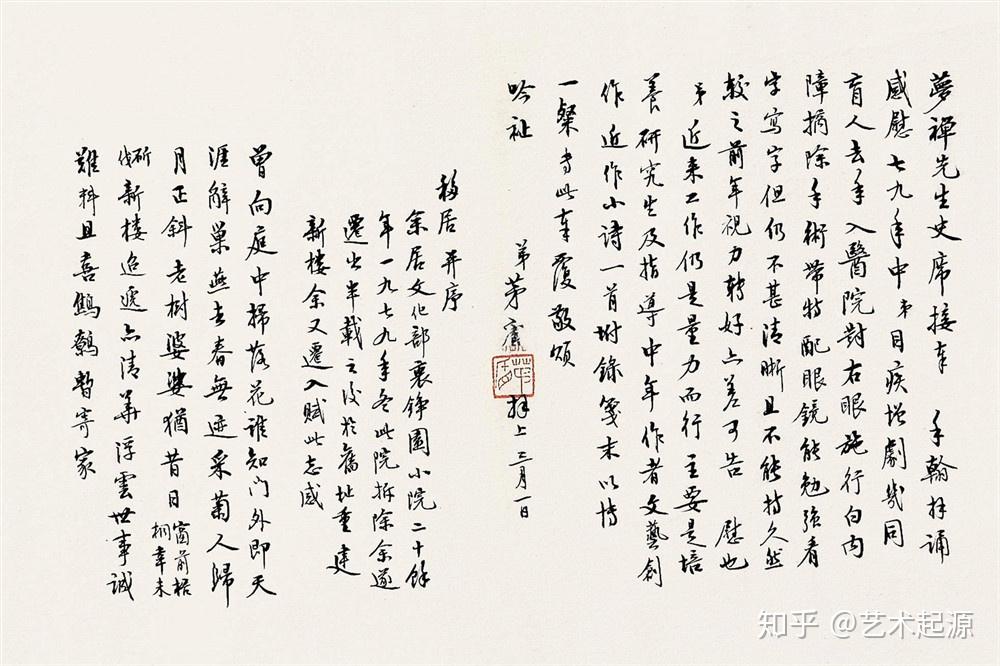 夢禪先生史席接奉 手翰拜誦
感慰七九年中弟目疾增劇幾同
盲人去年入醫院對右眼施行白内
障摘除手術帶特配眼鏡能勉強看
字寫字但仍不甚清晰且不能持久然
較之前年視力轉好亦差可告 慰也
弟近来工作仍是量力而行主要是培
養研究生及指導中年作者文藝創
作近作小詩一首附錄箋末以博
一粲专此奉覆敬頌
吟祉
弟茅 拜上三月一日
移居并序
余居文化部裏铮園小院二十餘
年一九七九年冬此院拆除余遂
遷出半載之後於舊址重建
新樓余又遷入賦此志感
曾向庭中掃落花誰知門外即天
涯辭巢燕去春無迹采菊人歸
月正斜老樹婆娑猶昔日窗前梧桐幸未
斫伐新樓迢遞亦清華浮雲世事誠
難料且喜鷦鷯暫寄家
知乎 @艺术起源